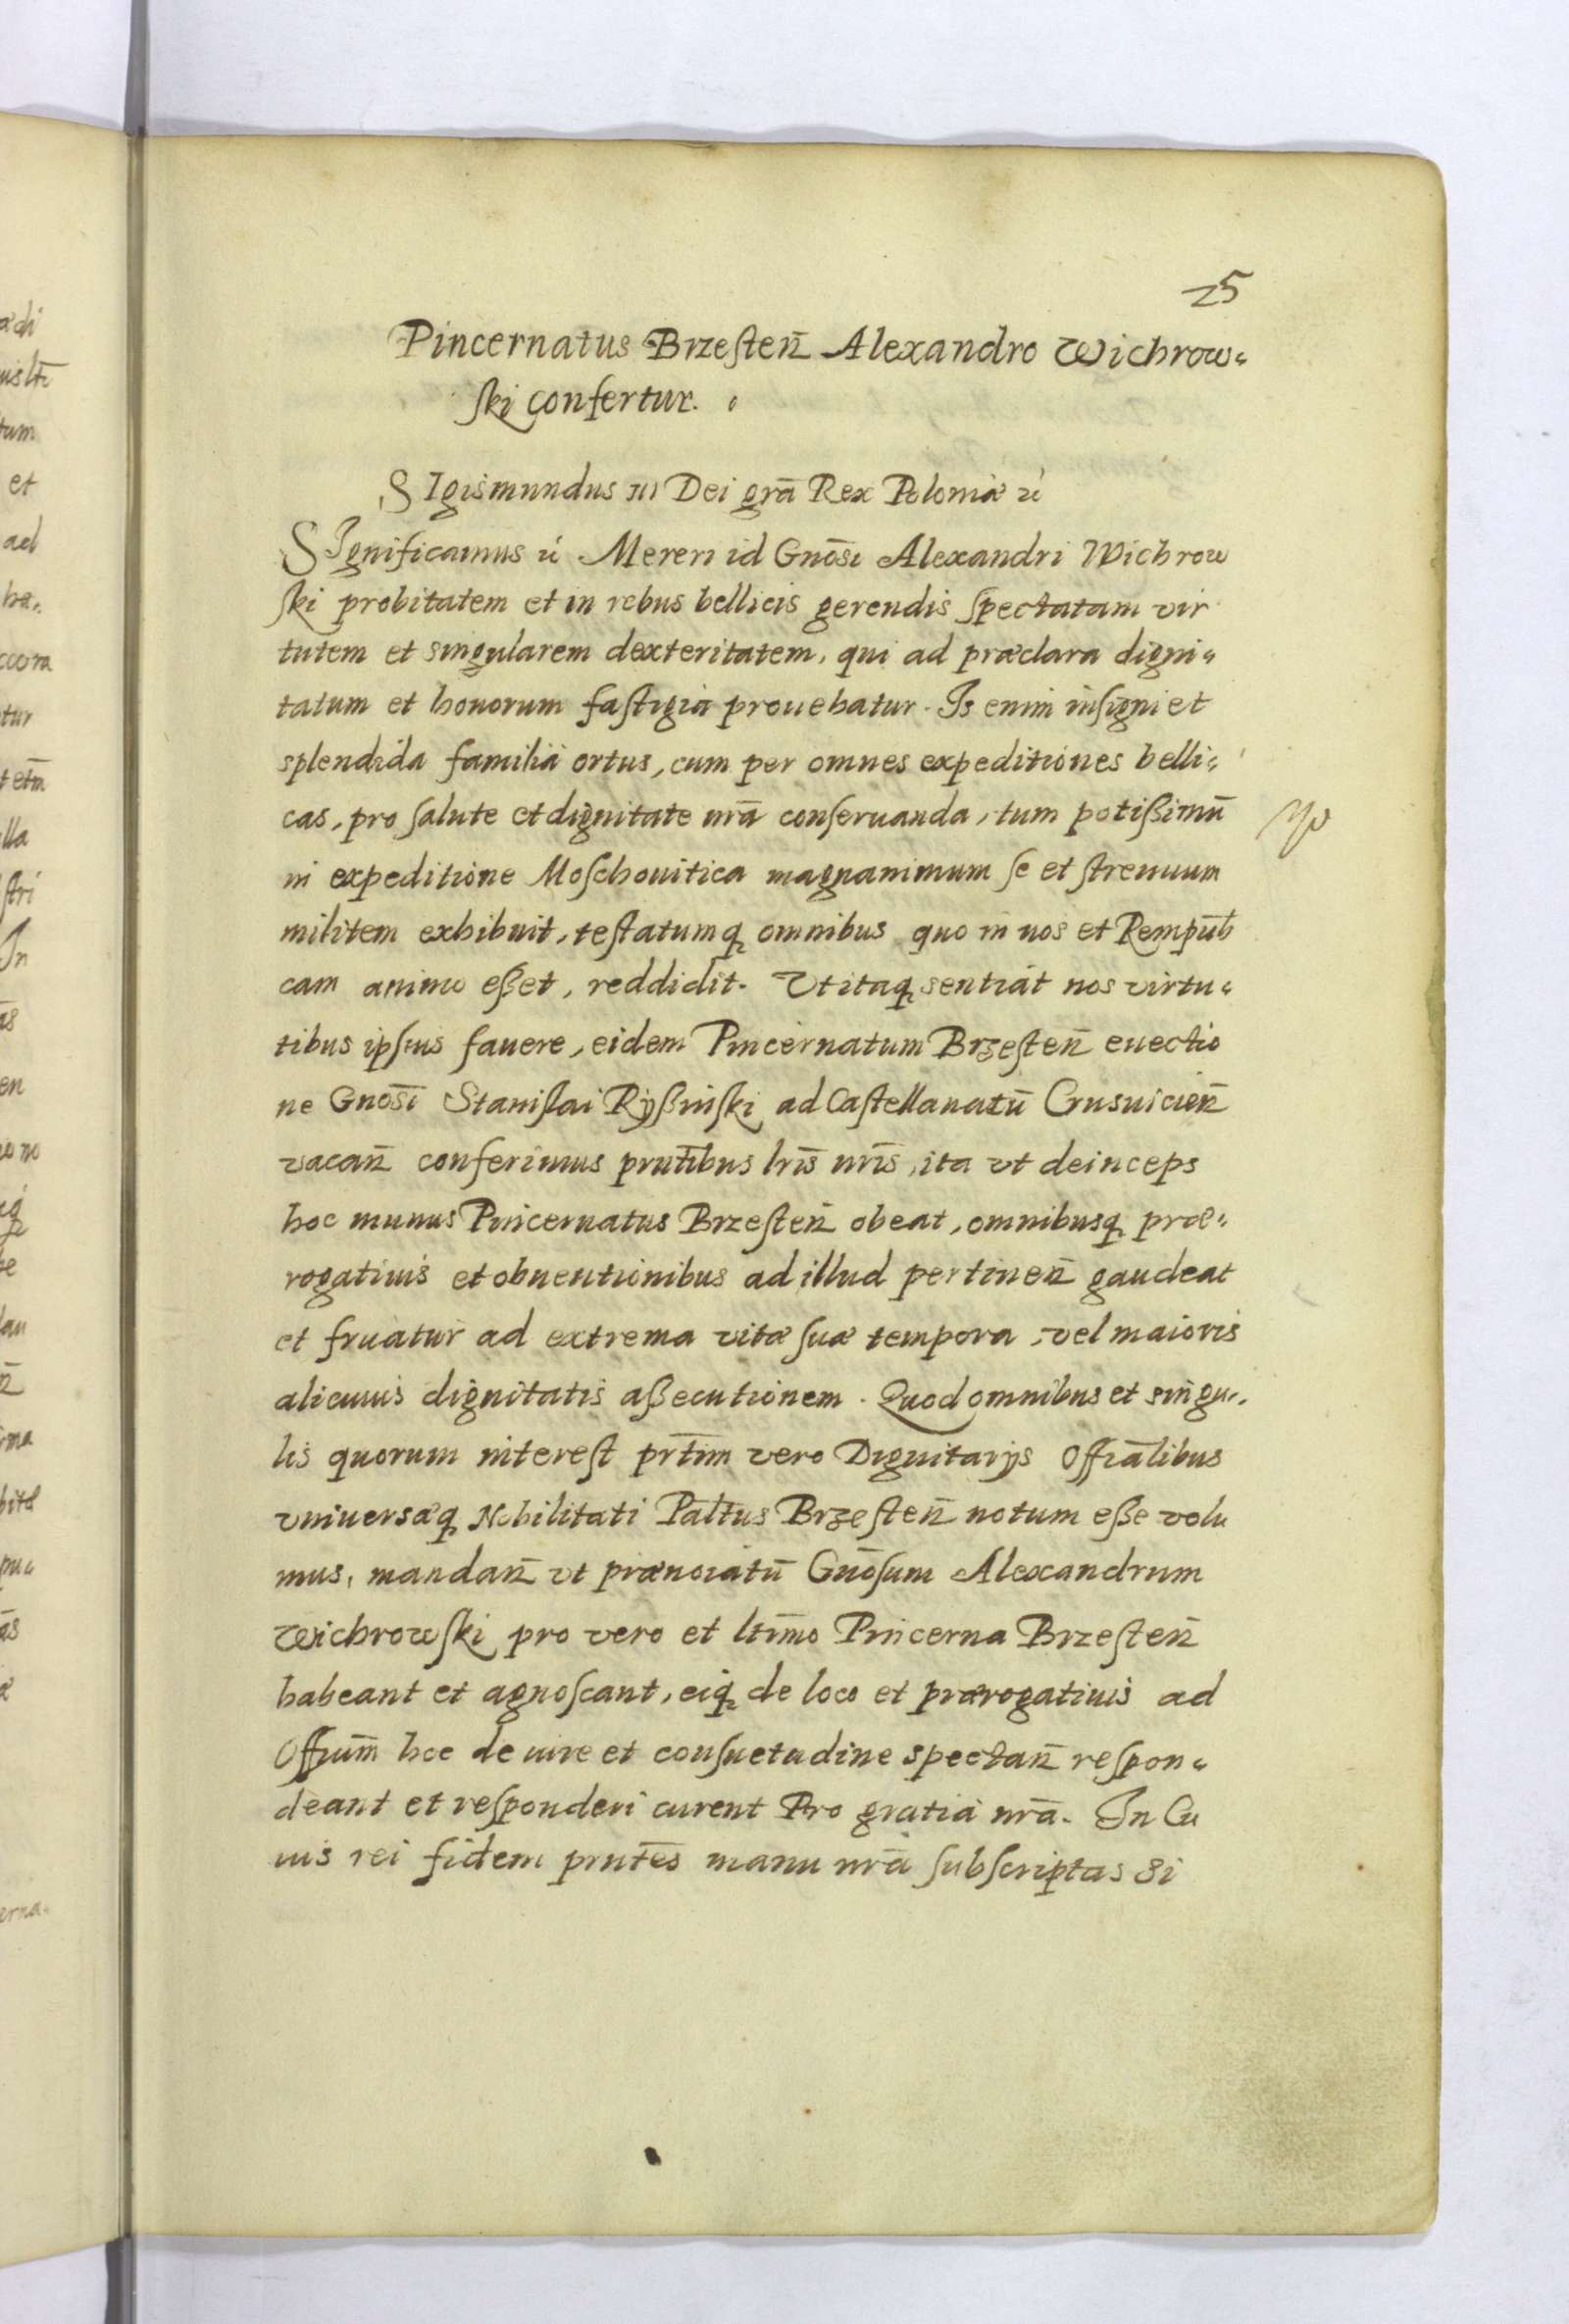 25
Pincernatus Brzesteñ Alexandro Wichrow-
ski confertur.
SIgismundus III Dei grã Rex Poloniæ &c
SIgnificamus &c Mereri id Gnõsi Alexandri Wichrow
ski probitatem et in rebus bellicis gerendis spectatam vir
tutem et singularem dexteritatem, qui ad præclara digni-
tatum et honorum fastigia prouehatur. Is enim insigni et
splendida familia ortus, cum per omnes expeditiones belli-
cas, pro salute et dignitate nrã conseruanda, tum potißimũ
in expeditione Moschouitica magnanimum se et strenuum
militem exhibuit, testatumq omnibus quo in nos et Rempub̃
cam animo eßet, reddidit. Vt itaq sentiat nos virtu-
tibus ipsius fauere, eidem Pincernatum Brzesteñ euectio
ne Gnosĩ Stanislai Rÿßinski ad Castellanatũ Crusuicieñ
vacañ conferimus prntĩbus lrĩs nrĩs, ita vt deinceps
hoc munus Pincernatus Brzesteñ obeat, omnibusq præ-
rogatiuis et obuentionibus ad illud pertineñ gaudeat
et fruatur ad extrema vitæ suæ tempora, vel maioris
alicuius dignitatis aßecutionem. Quod omnibus et singu-
lis quorum interest prt̃im vero Dignitarijs Offiãlibus
vniuersæq Nobilitati Palt̃us Brzesteñ notum eße volu
mus, mandañ vt prænoiatũ Gnõsum Alexandrum
Wichrowski pro vero et ltĩmo Pincerna Brzesteñ
habeant et agnoscant, eiq de loco et prærogatiuis ad
Offium̃ hoc de iure et consuetudine spectañ respon-
deant et responderi curent Pro gratia nrã. In Cu
ius rei fidem prnt̃es manu nrã subscriptas Si